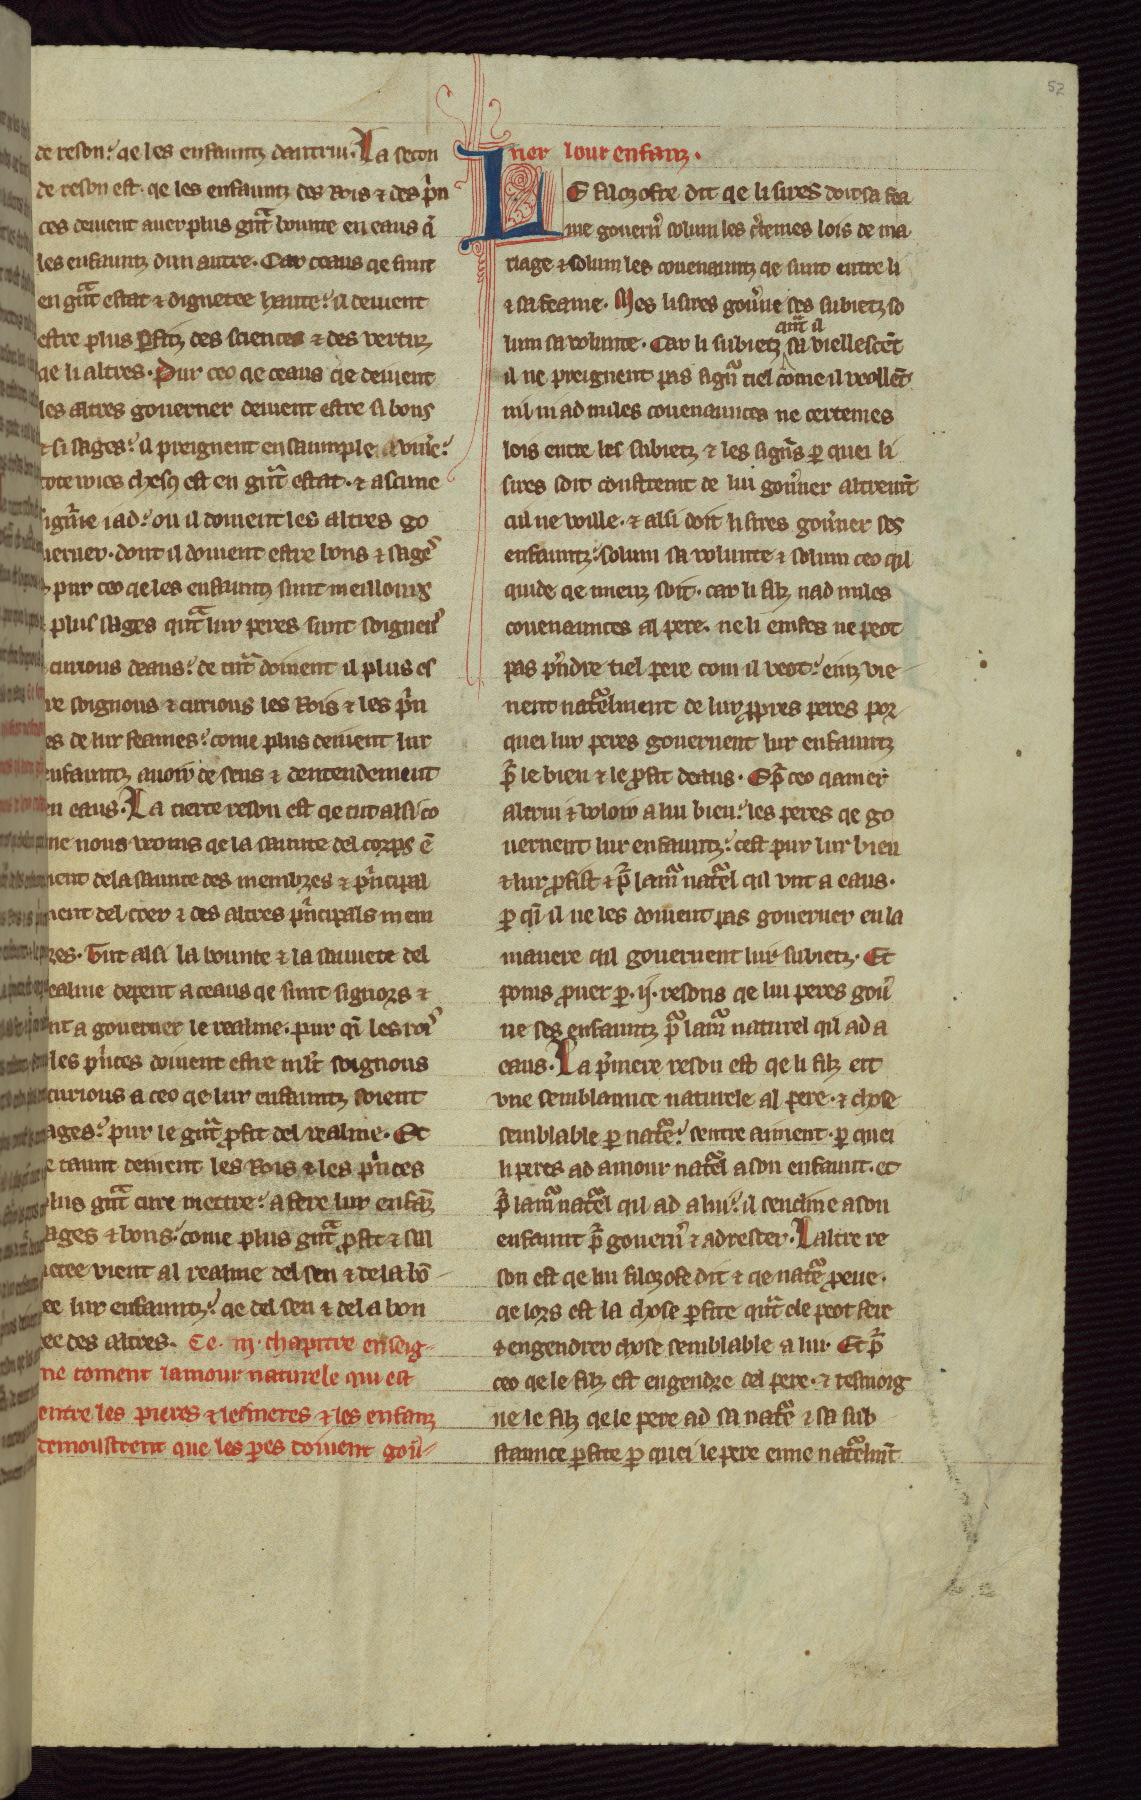 52
de reson: qe les enfauntz dautrui. La secon
de reson est. qe les enfauntz des Rois & des prin
ces deuent auer plus gnt bounte en eaus q
les enfauntz dun autre. Car ceaus qe sunt
en gnt estat & dignetee haute: il deuent
estre plus pfitz des sciences & des vertuz
qe li altres. Pur ceo qe ceaus qe deuent
les altres gouerner deuent estre si bons
& si sages: il preignent ensaumple a viure:
tote wies chesq est en gnt estat. & ascune
ignurie iad: ou il doiuent les altres go
uerner. dont il doiuent estre bons & sages
pur ceo qe les enfauntz sunt meillours
plus sages qnt lur peres sunt soigneus
curious deaus: de tnt doiuent il plus es
re soignous & curious les Rois & les prin
es de lur feames: come plus deuent lur
enfauntz auoir de sens & dentendement
n eaus. La tierce reson est qe tut alsi co
me nous veoms qe la saunte del corps e
nent de la saunte des membres & principal
ment del coer & des altres principals mem
res. Tut alsi la bounte & la sauuete del
ealme depent a ceaus qe sunt signors &
nt a gouerner le realme. pur qi les rois
les princes doiuent estre mlt soignous
curious a ceo qe lur enfauntz soient
ages: pur le gnt profit del realme. Et
e taunt deiuent les Rois & les princes
lus gnt cure mettre: a fere lur enfanz
ages & bons: come plus gnt profit & sau
uetee vient al realme del sen & de la bo-
ee lur enfauntz: qe del sen & del a bon
ee des altres. Ce. iij. chapitre enseig-
ne coment lamour naturele qui est
entre les pieres & les meres & les enfanz
demoustrent que les peres doiuent gou-
ner lour enfanz.
LE filozofre dit qe li sires doit sa fea
me gouern solum les certemes lois de ma
riage & solum les couenauntz qe sunt entre li
& sa feame. Mes li sires gouerne ses subietz so
lum sa volunte. Car li subietz qnt il sa viellescent
il ne preignent pas signur tiel come il veollent
nil ni ad nules couenaunces ne certemes
lois entre les subietz & les signurs per quei li
sires soit constreint de lui gouerner altrement
qil ne voille. & alsi doit li sires gouerner ses
enfauntz: solum sa volunte & solum ceo qil
quide qe mieuz soit. car li filz nad nules
couenaunces al pere. ne li emfes ne peot
pas prendre tiel pere com il veot: einz vie-
nent naturelment de lur propres peres por
quei lur peres gouernent lur enfauntz
pur le bien & le profit deaus. E pur ceo qamer
altrui & voloir a lui bien: les peres qe go
uernent lur enfauntz: cest pur lur bien
& lur profist & pur lamur naturel qil vnt a eaus.
per qi il ne les doiuent pas gouerner en la
manere qil gouernent lur subietz. Et
poms prouer per .ij. resons qe lui peres gouer
ne ses enfauntz pur lamur naturel qil ad a
eaus. La primere reson est qe li filz est
vne semblaunce naturele al pere. & chose
semblable per nature: sentre aiment. per quei
li peres ad amour naturel a son enfaunt. et
pur lamur naturel qil ad a lui: il sencline a son
enfaunt pur gouern & adrescer. Laltre re
son est qe lui filozofe dit & qe nature proeue.
qe lors est la chose perfite qnt ele peot fere
& engendrer chose semblable a lui. Et pur
ceo qe le filz est engendre del pere. & tesmoig
ne le filz qe le pere ad sa nature & sa sub
staunce perfite per quei le pere eime naturelment